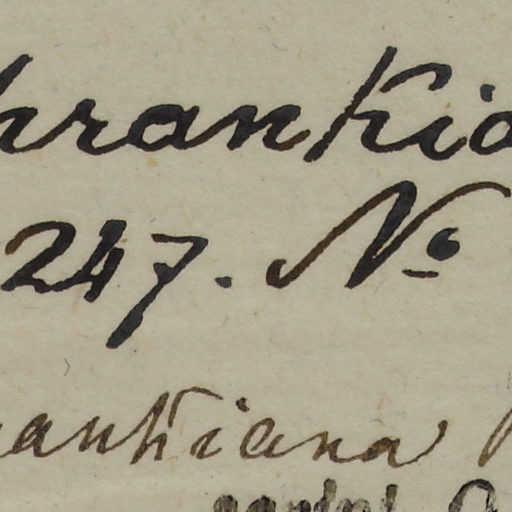 hrankia
247. No
ankiana